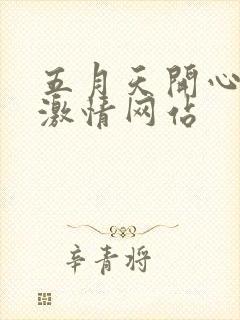 五月天開心
激情网站
辛青将